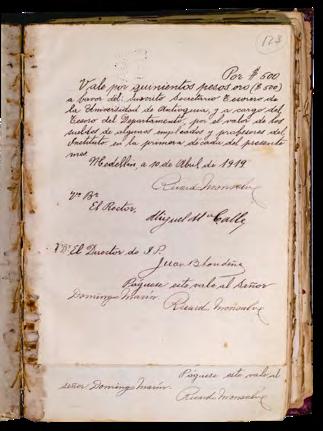 123
Por $ 500
Vale por quinientos pesos oro ($ 500)
a favor del suscrito Secretario Tesorero de
la Universidad de Antioquia, y a cargo del
Tesoro del Departamento, por el valor de los
sueldos de algunos empleados y profesores del
Instituto en la primera década del presente
mes
Medellín, a 10 de Abril de 1919.
Ricardo Monsalve
Vº Bº
El Rector,
Miguel Mª Calle
Vº Bº El Director de I. P.
Juan B Londoño
Páguese este vale al Señor
Domingo Marín
Ricardo Monsalve
Páguese este vale al
señor Domingo Marín.
Ricardo Monsalve